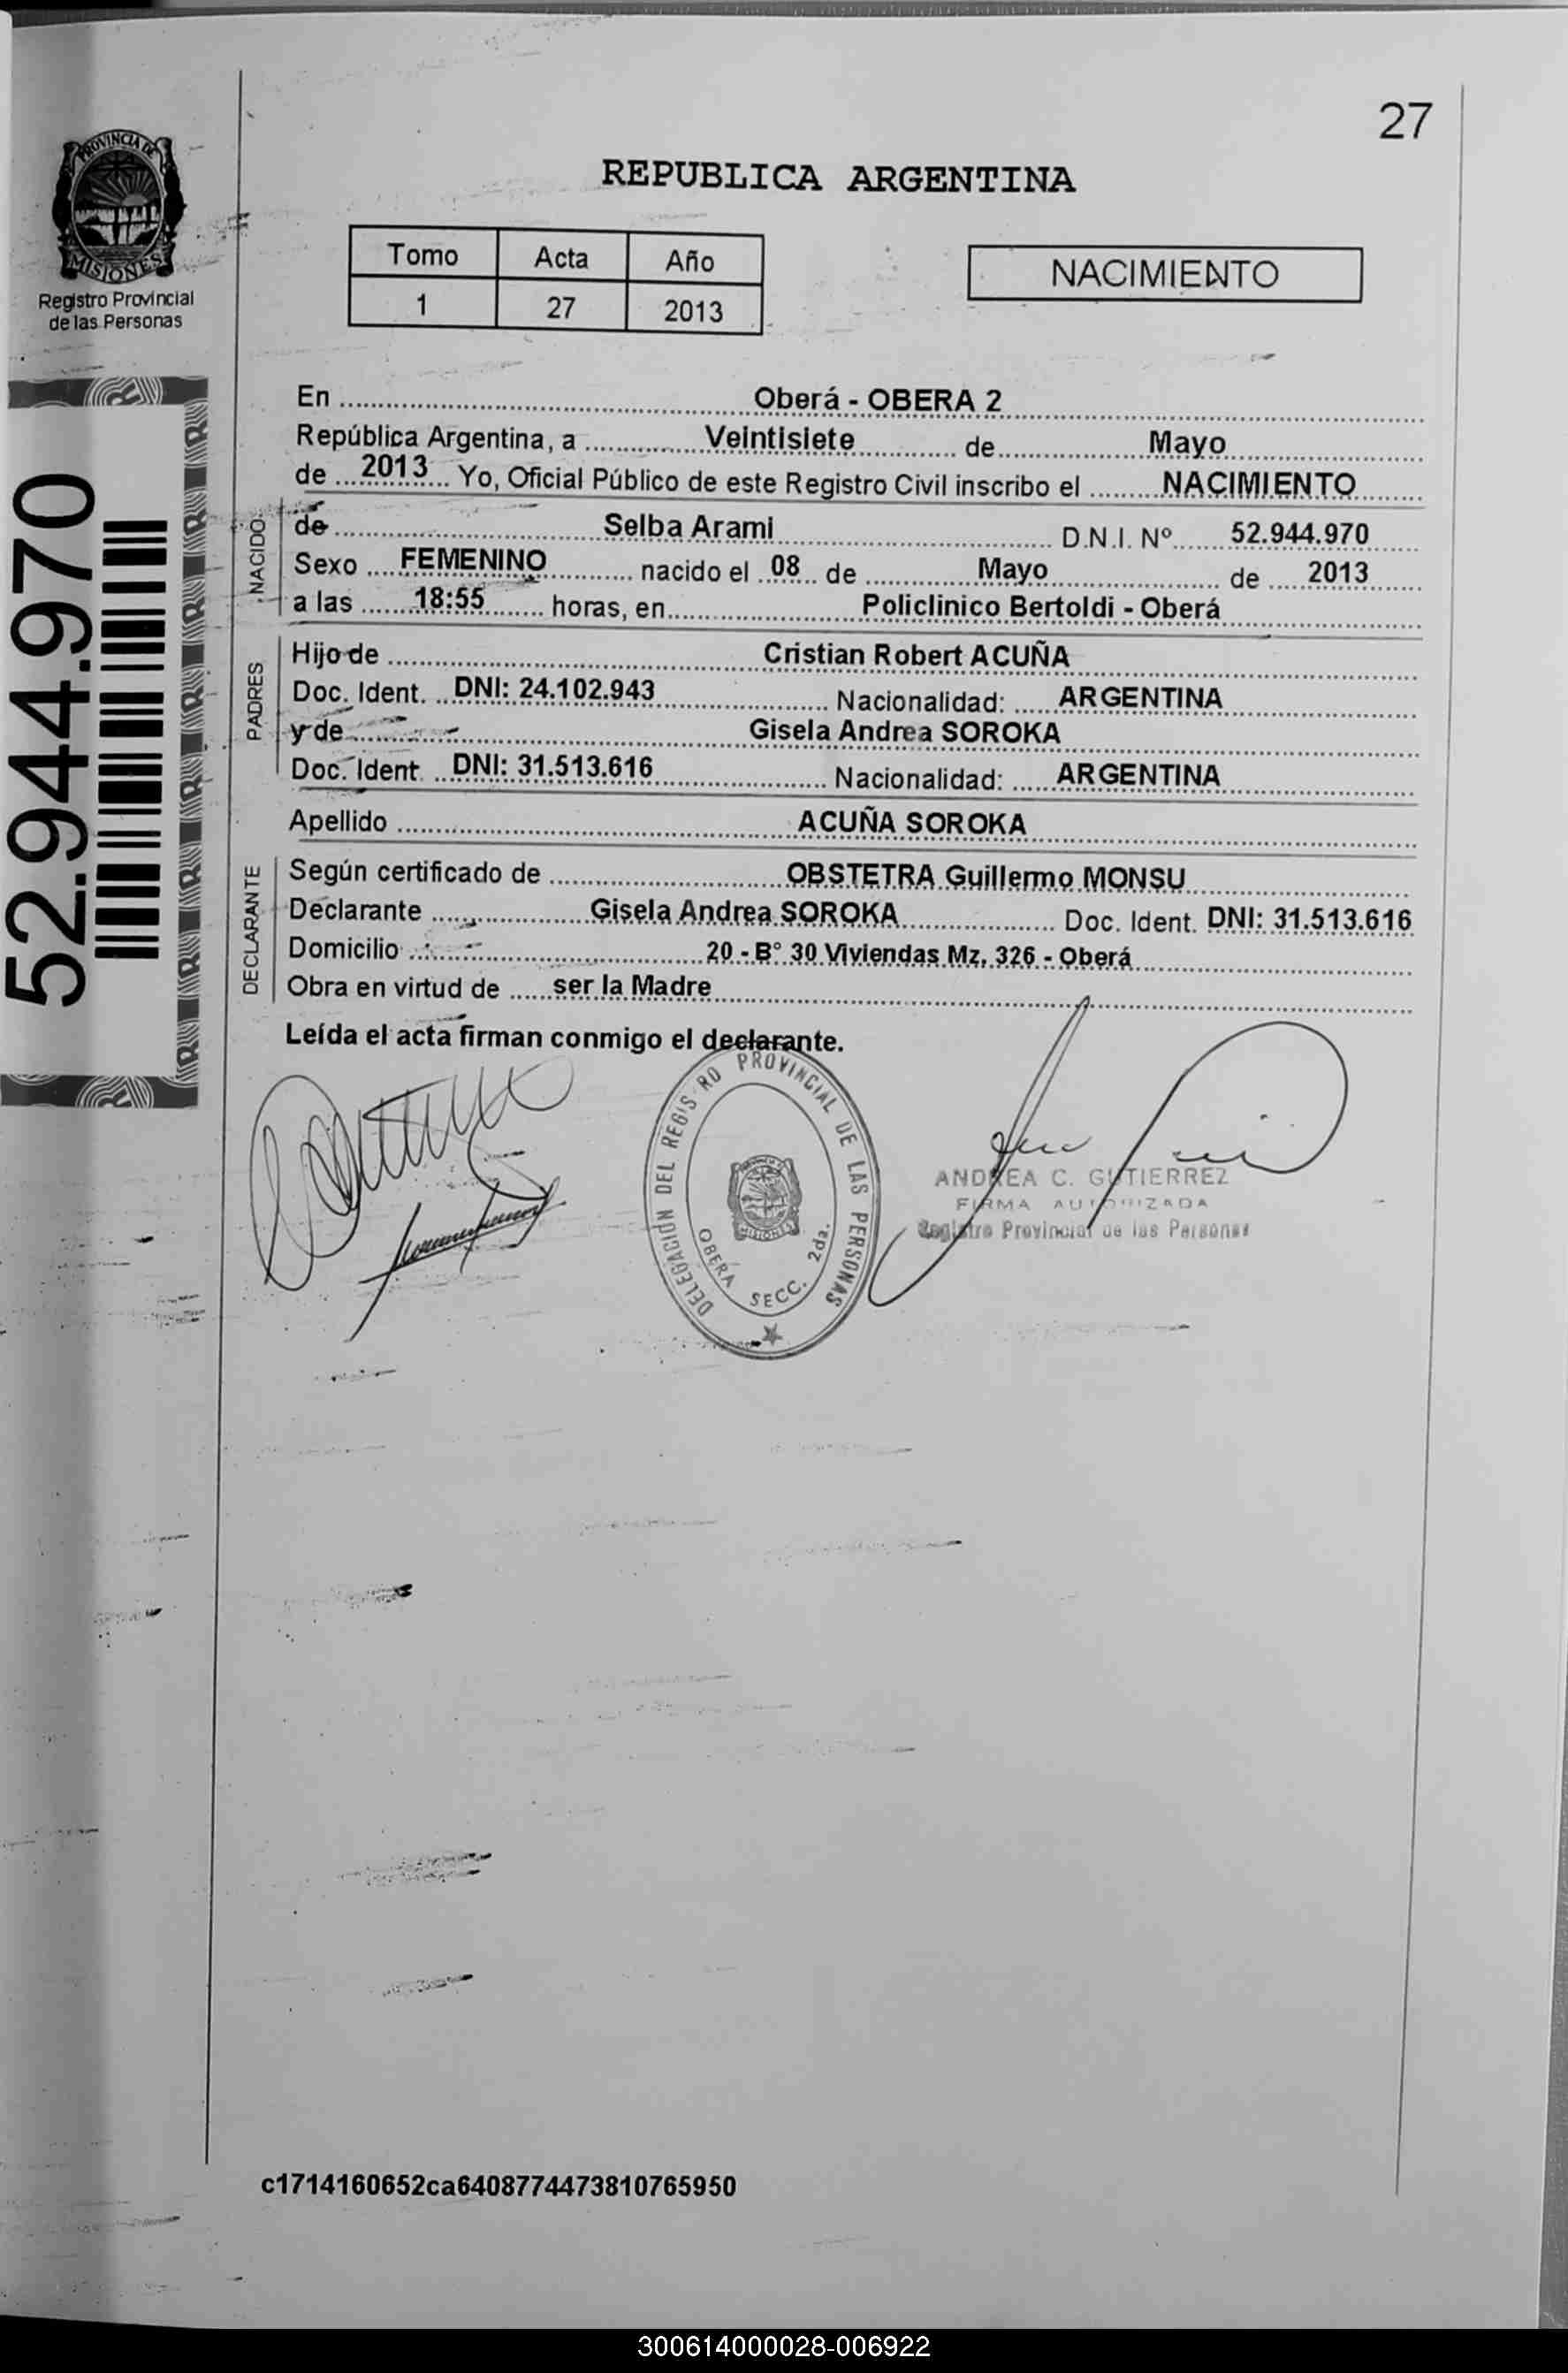 27
PROVINCIA DE
MISIONES
Registro Provincial
de las Personas
REPUBLICA ARGENTINA
Tomo Acta Año
1 27 2013
NACIMIENTO
52.944.970
En Oberá - OBERA 2
República Argentina, a Veintisiete de Mayo
de 2013 Yo, Oficial Público de este Registro Civil inscribo el NACIMIENTO
NACIDO
de Selba Arami D.N.I. Nº 52.944.970
Sexo FEMENINO nacido el 08 de Mayo de 2013
a las 18:55 horas, en Policlinico Bertoldi - Oberá
PADRES
Hijo de Cristian Robert ACUÑA
Doc. Ident. DNI: 24.102.943 Nacionalidad: ARGENTINA
y de Gisela Andrea SOROKA
Doc. Ident. DNI: 31.513.616 Nacionalidad: ARGENTINA
Apellido ACUÑA SOROKA
DECLARANTE
Según certificado de OBSTETRA Guillermo MONSU
Declarante Gisela Andrea SOROKA Doc. Ident. DNI: 31.513.616
Domicilio 20 - B° 30 Viviendas Mz. 326 - Oberá
Obra en virtud de ser la Madre
Leída el acta firman conmigo el declarante.
DELEGACIÓN DEL REGISTRO PROVINCIAL DE LAS PERSONAS
OBERA SECC. 2da.
ANDREA C. GUTIERREZ
FIRMA AUTORIZADA
Registro Provincial de las Personas
c1714160652ca6408774473810765950
300614000028-006922